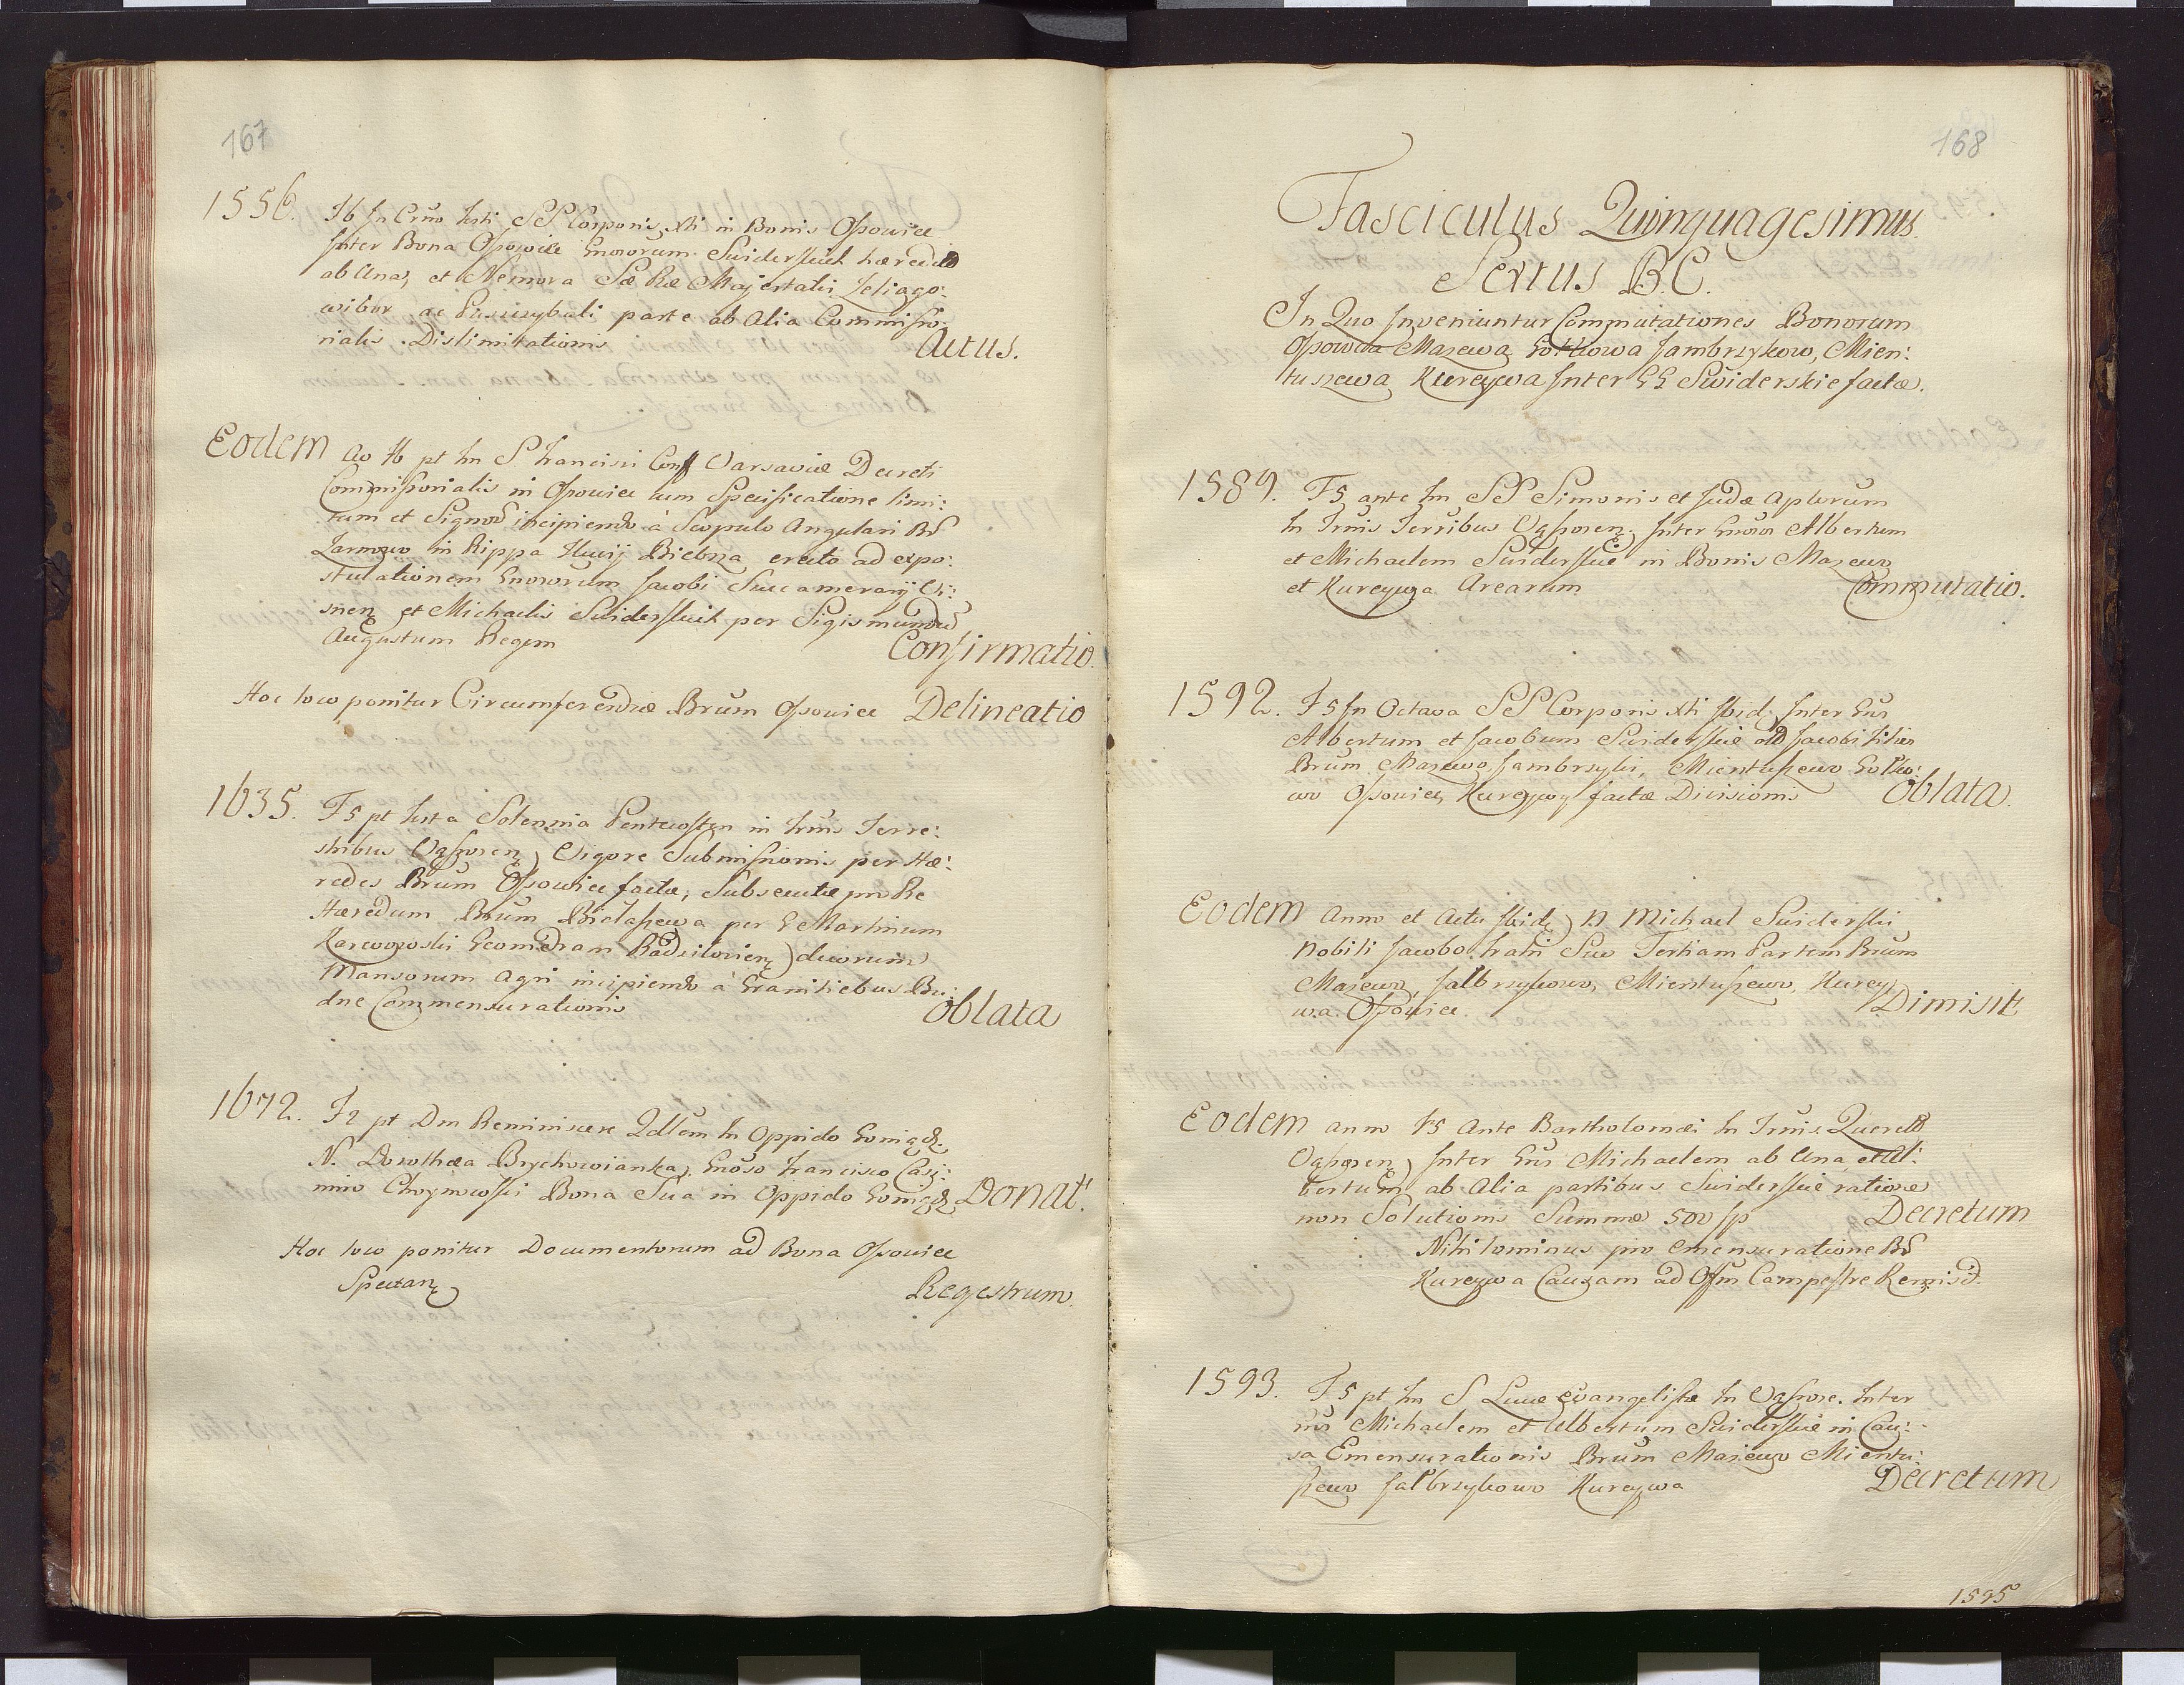 167
1556. F6 In Crno Festi SS Corporis Xti in Bonis Osowice
Inter Bona Osowice Gnosorum Swiderskich hæredũ
ab Una, et Nemora Sæ Ræ Majestatis
ac parte ab Alia Commisso:
rialis Dislimitationis Actus.
Eodem Ao F6 pt fm S Francisci Conf Varsaviæ Decreti
Commissorialis in Osowice cum Specificatione limi:
tum et Signorũ incipiendo à Scopulo Angulari
in Rippa Fluvij Biebrza erecto ad expo:
stulationem Gnosorum Jacobi Succamerarij Vi:
snen et Michaelis Swiderskich per Sigismundũ
Augustum Regem Confirmatio.
Hoc loco ponitur Circumferendiæ Brum Osowice Delineatio
1635. F5 pt festa Solennia Pentecosten in Trnis Terre:
stribus Vąsosen, Vigore Submissionis per Hæ:
redes Brum Osowice factæ, Subsecutæ pro Re
Hæredum Brum Bielaszewa per G Martinum
Karwowski Geometram Radzilovien, duorum
Mansorum Agri incipiendo à Granitiebus Bu:
dne Commensurationis Oblata
1672. F2 pt Dm Reminiscere Qdlem In Oppido Goniądz.
N. Dorothea Brychowianka, Gnoso Francisco Casi:
miro Choynowski Bona Sua in Oppido Goniądz Donat.
Hoc loco ponitur Documentorum ad Bona Osowice
Spectan Regestrum.
168
Fasciculus Quinquagesimus
Sextus B.C.
In Quo Inveniuntur Commutationes Bonorum
Osowica Mazewa Gołkowa Jambrzykow, Mien:
tuszewa Kureywa Inter GG Swiderskie factæ.
1589. F5 ante fm SS Simonis et Judæ Aplorum
In Trnis Terribus Vąsosen, Inter Gnosos Albertum
et Michaelem Swiderskie in Bonis Mazewo
et Kureywa Arearum Commutatio.
1592. F5 In Octava SS Corporis Xti Ibid, Inter Gnos
Albertum et Jacobum Swiderskie olđ Jacobi filios
Brum Mazewo, Jambrzyki, Mientuszewo Gołko:
wo Osowice, Kureywy factæ Divisionis Oblata.
Eodem Anno et Actu Ibid, N Michael Swiderski
Nobili Jacobo fratri Suo Tertiam Partem Brum
Mazewo, Jałbrzykowo, Mientuszewo, Kurey
wa Osowice. Dimisit
Eodem anno F5 Ante Bartholomæi In Trnis Querell
Vąsosen, Inter Gnos Michaelem ab Una et Al:
bertum ab Alia partibus Swiderskie ratione
non Solutionis Summæ 500 sp Decretum
Nihilominus pro emensuratione Br
Kureywa Causam ad Ofm Campestre Remisid.
1593. F5 pt fm S Lucæ Evangelistæ In Vąsose. Inter
nos Michaelem et Albertum Swiderskie in Cau:
sa Emensurationis Brum Mazewo Mientu:
szewo Jałbrzykowo Kureywa Decretum
1595